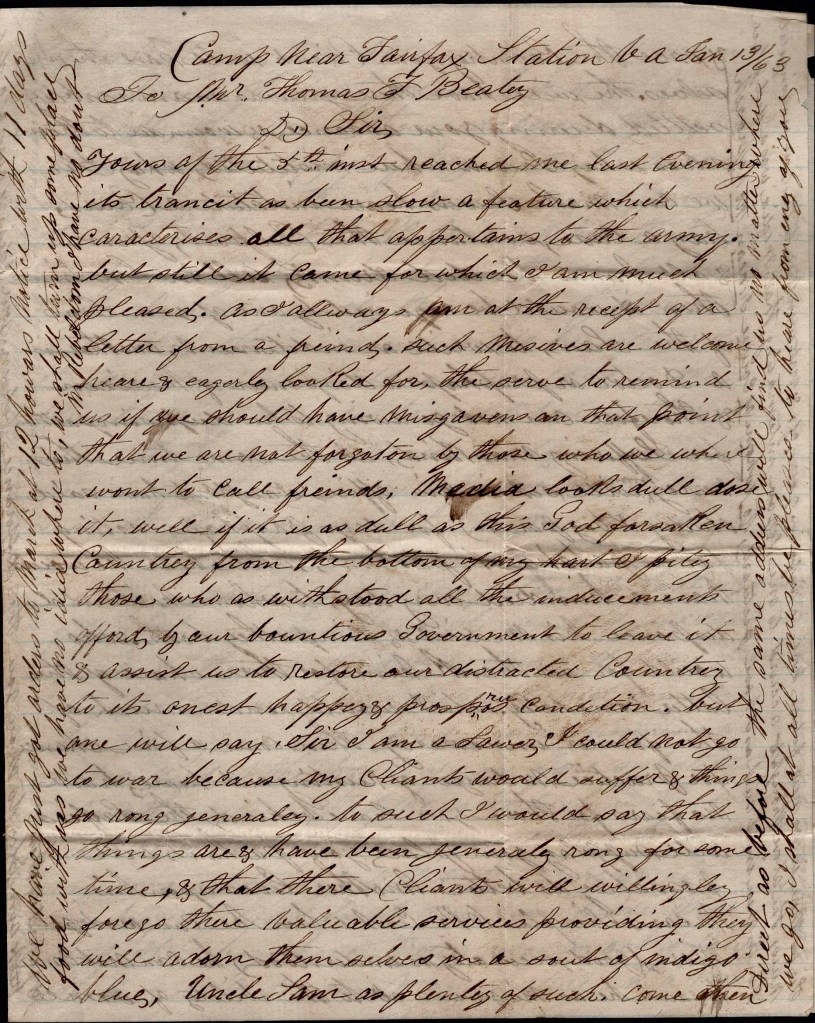 Camp Near Fairfax Station Va Jan 13/63
To Mr. Thomas F Beatey
Dr Sir,
Yours of the 5th inst reached me last Evening
its trancit as been slow a feature which
caracterises all that appertains to the army.
but still it came for which I am much
pleased. as I allways am at the recept of a
letter from a freind. such Mesives are welcome
heare & eagerly looked for, the serve to remind
us if we should have Misgavens on that point
that we are not forgoton by those who we where
wont to call freinds, Media looks dull dose
it, well if it is as dull as this God forsaken
Countrey from the bottom of my hart I pitey
those who as withstood all the inducements
afford, by our bountious Government to leave it
& assist us to restore our distracted Countrey
to its onest happey & prosprous condition. but
one will say, Sir I am a Lawer, I could not go
to war because my Cliants would suffer & things
go rong generaley. to such I would say that
things are & have been generaly rong for some
time, & that there Cliants will willingley
forego there valuable services providing they
will adorn them selves in a sout of indigo
blue, Uncle Sam as plentey of such. come then
We have just got orders to march at 12 howars notice with 11 days
food with us we have no idia where to, we shall turn up some place
in Rebeldom I have no dout
Direct as before the same address will find us no matter where
we go I shall at all times be pleased to heare from eny of you